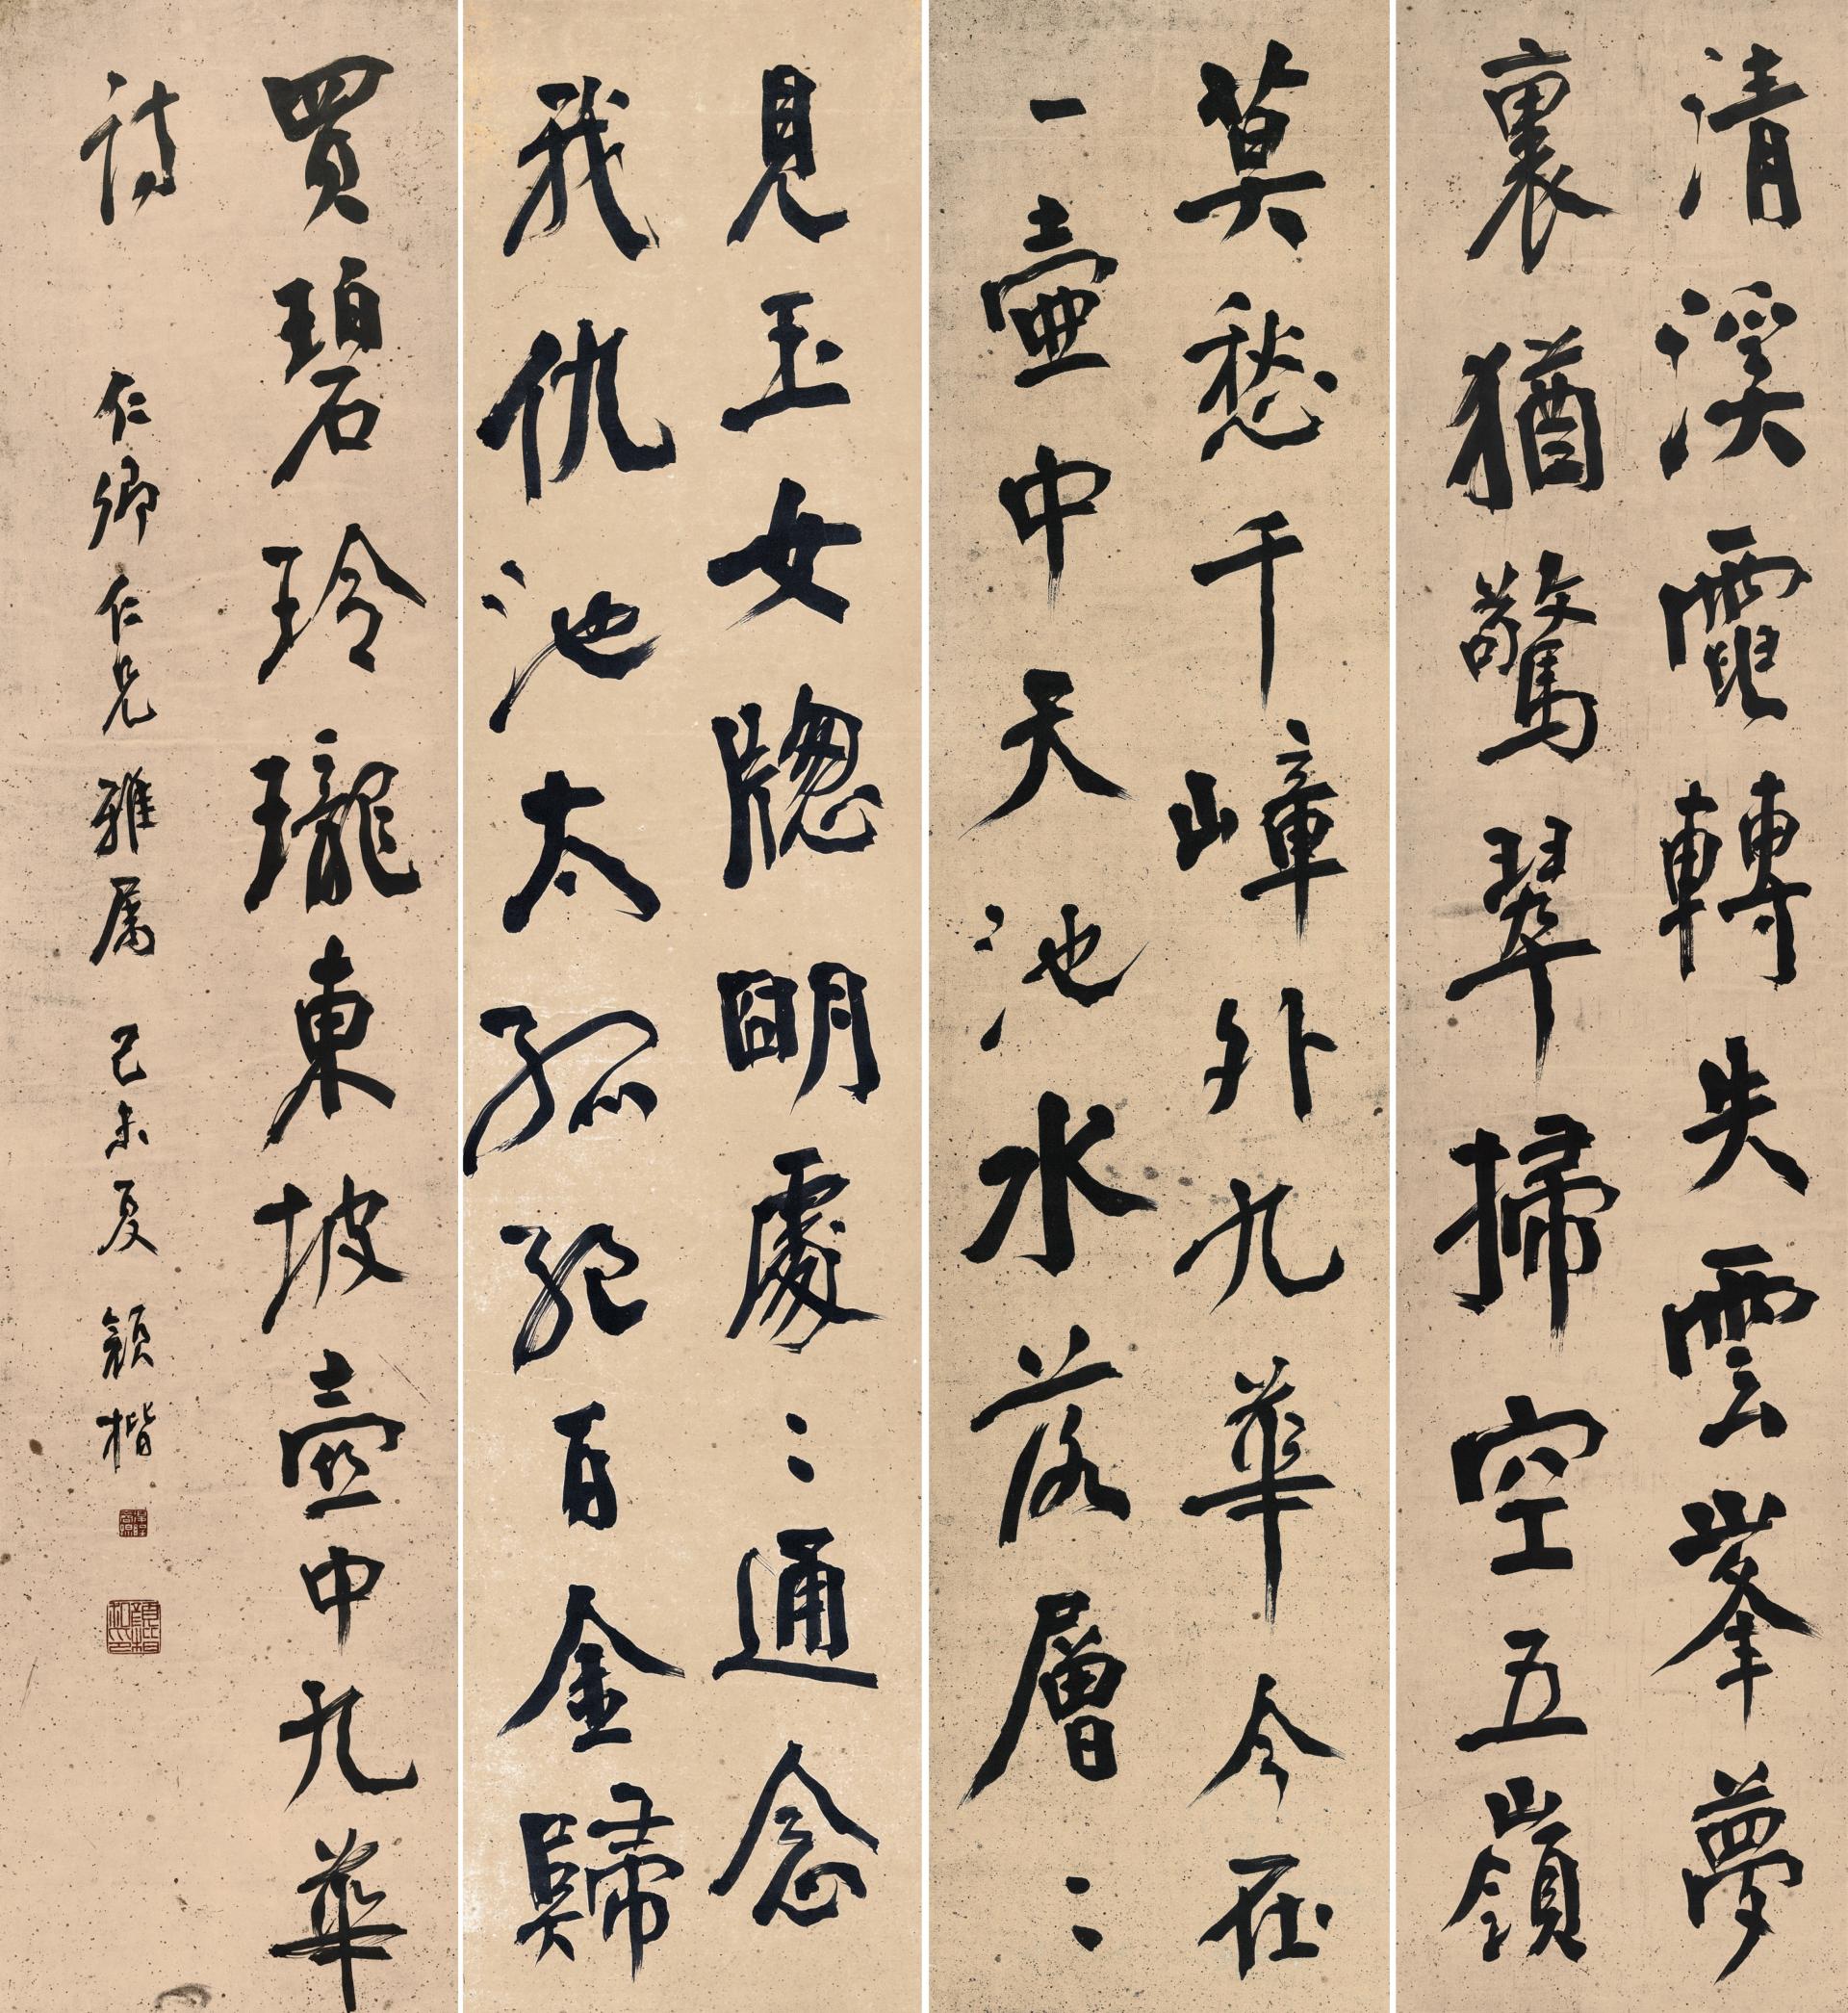 清溪電轉失雲峯夢
裏猶驚翠掃空五嶺
莫愁千嶂外九華今在
一壺中天池水落層〻
見玉女牕朙處〻通念
我仇池太孤絕百金歸
買碧玲瓏東坡壺中九華
詩 仁卿仁兄雅属 己未夏 顏楷